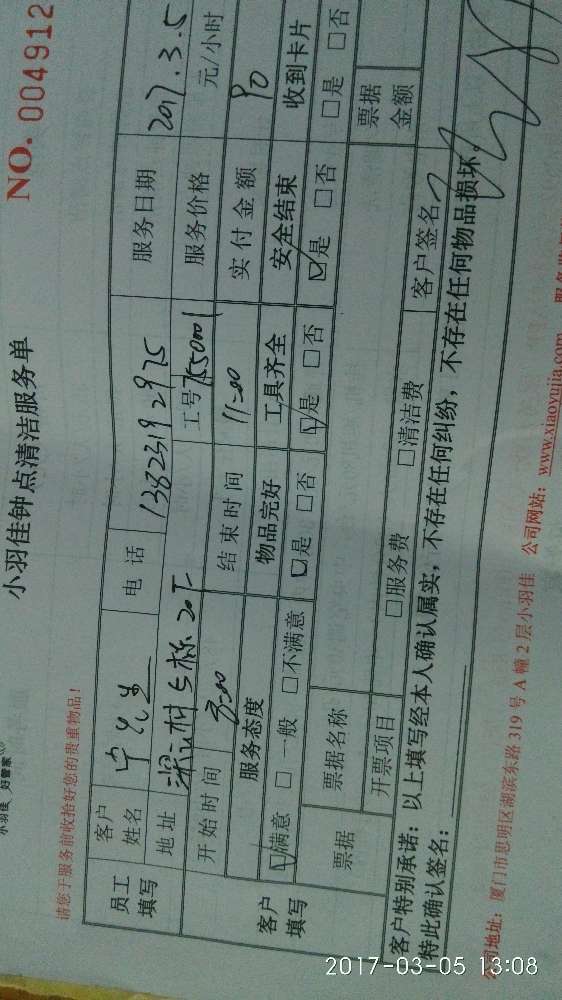 小羽佳 好管家
小羽佳钟点清洁服务单
NO. 004912
请您于服务前收拾好您的贵重物品！
员工填写
客户姓名 宁先生 电话 13823192975 服务日期 2017.3.5
地址 工号 服务价格 元/小时
开始时间 8:00 结束时间 11:00 实付金额 90
客户填写
服务态度 物品完好 工具齐全 安全结束 收到卡片
☑满意 □一般 □不满意 ☑是 □否 ☑是 □否 ☑是 □否 □是 □否
票据 票据名称 票据金额
开票项目 □服务费 □清洁费 客户签名
客户特别承诺：以上填写经本人确认属实，不存在任何纠纷，不存在任何物品损坏.
特此确认签名：
公司地址：厦门市思明区湖滨东路319号A幢2层小羽佳 公司网站：www.xiaoyujia.com
2017-03-05 13:08